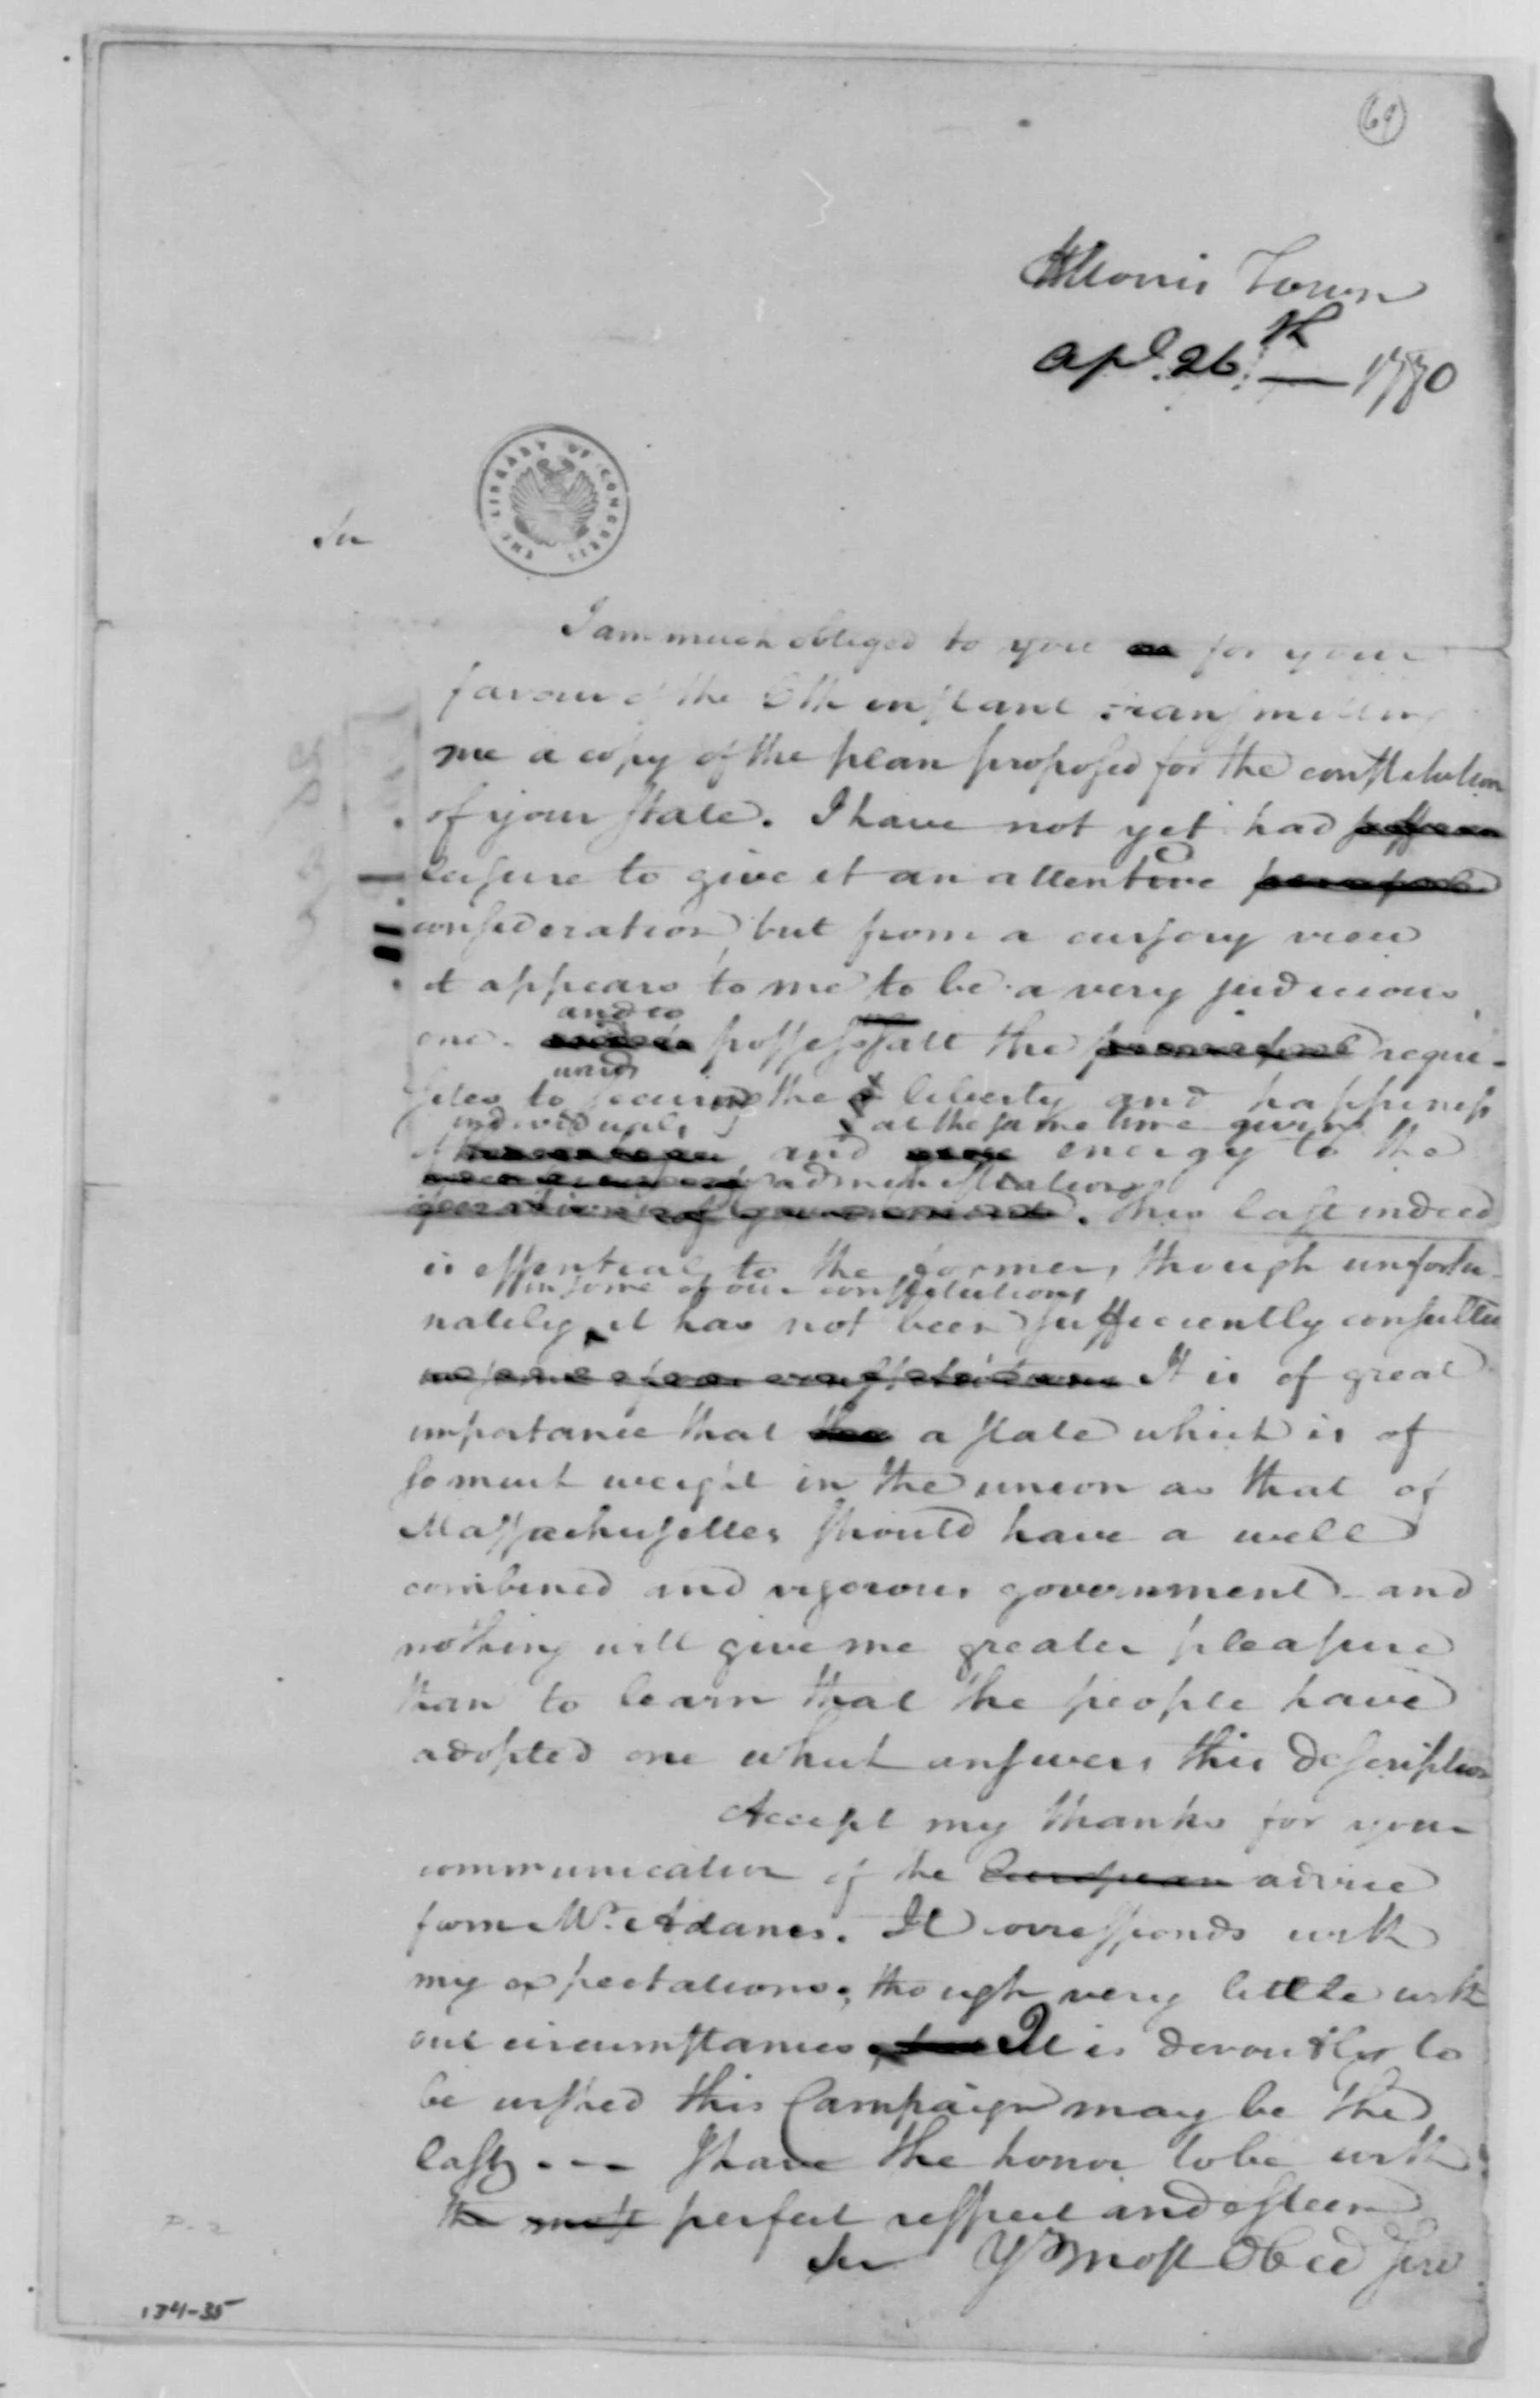 69
Morris Town
Apl. 26th — 1780
THE LIBRARY OF CONGRESS
Sir
I am much obliged to you for your
favour of the 6th instant transmitting
me a copy of the plan proposed for the constitution
of your state. I have not yet had
leisure to give it an attentive
consideration, but from a cursory view
it appears to me to be a very judicious
and to
one. possess all the requi-
sites to securing the liberty and happiness
individuals at the same time giving
of and energy to the
administration
. This last indeed
is essential to the former, though unfortu-
in some of our constitutions
nately it has not been sufficiently consulted
in some of our constitutions It is of great
importance that the a state which is of
so much weight in the union as that of
Massachusettes should have a well
combined and vigorous government and
nothing will give me greater pleasure
than to learn that the people have
adopted one which answers this description
Accept my thanks for your
communication of the European advice
from Mr. Adams. It corresponds with
my expectations; though very little with
our circumstances. It is devoutly to
be wished this Campaign may be the
last. — I have the honor to be with
the most perfect respect and esteem
Sir Yr most Obed Serv
P-2
134-35